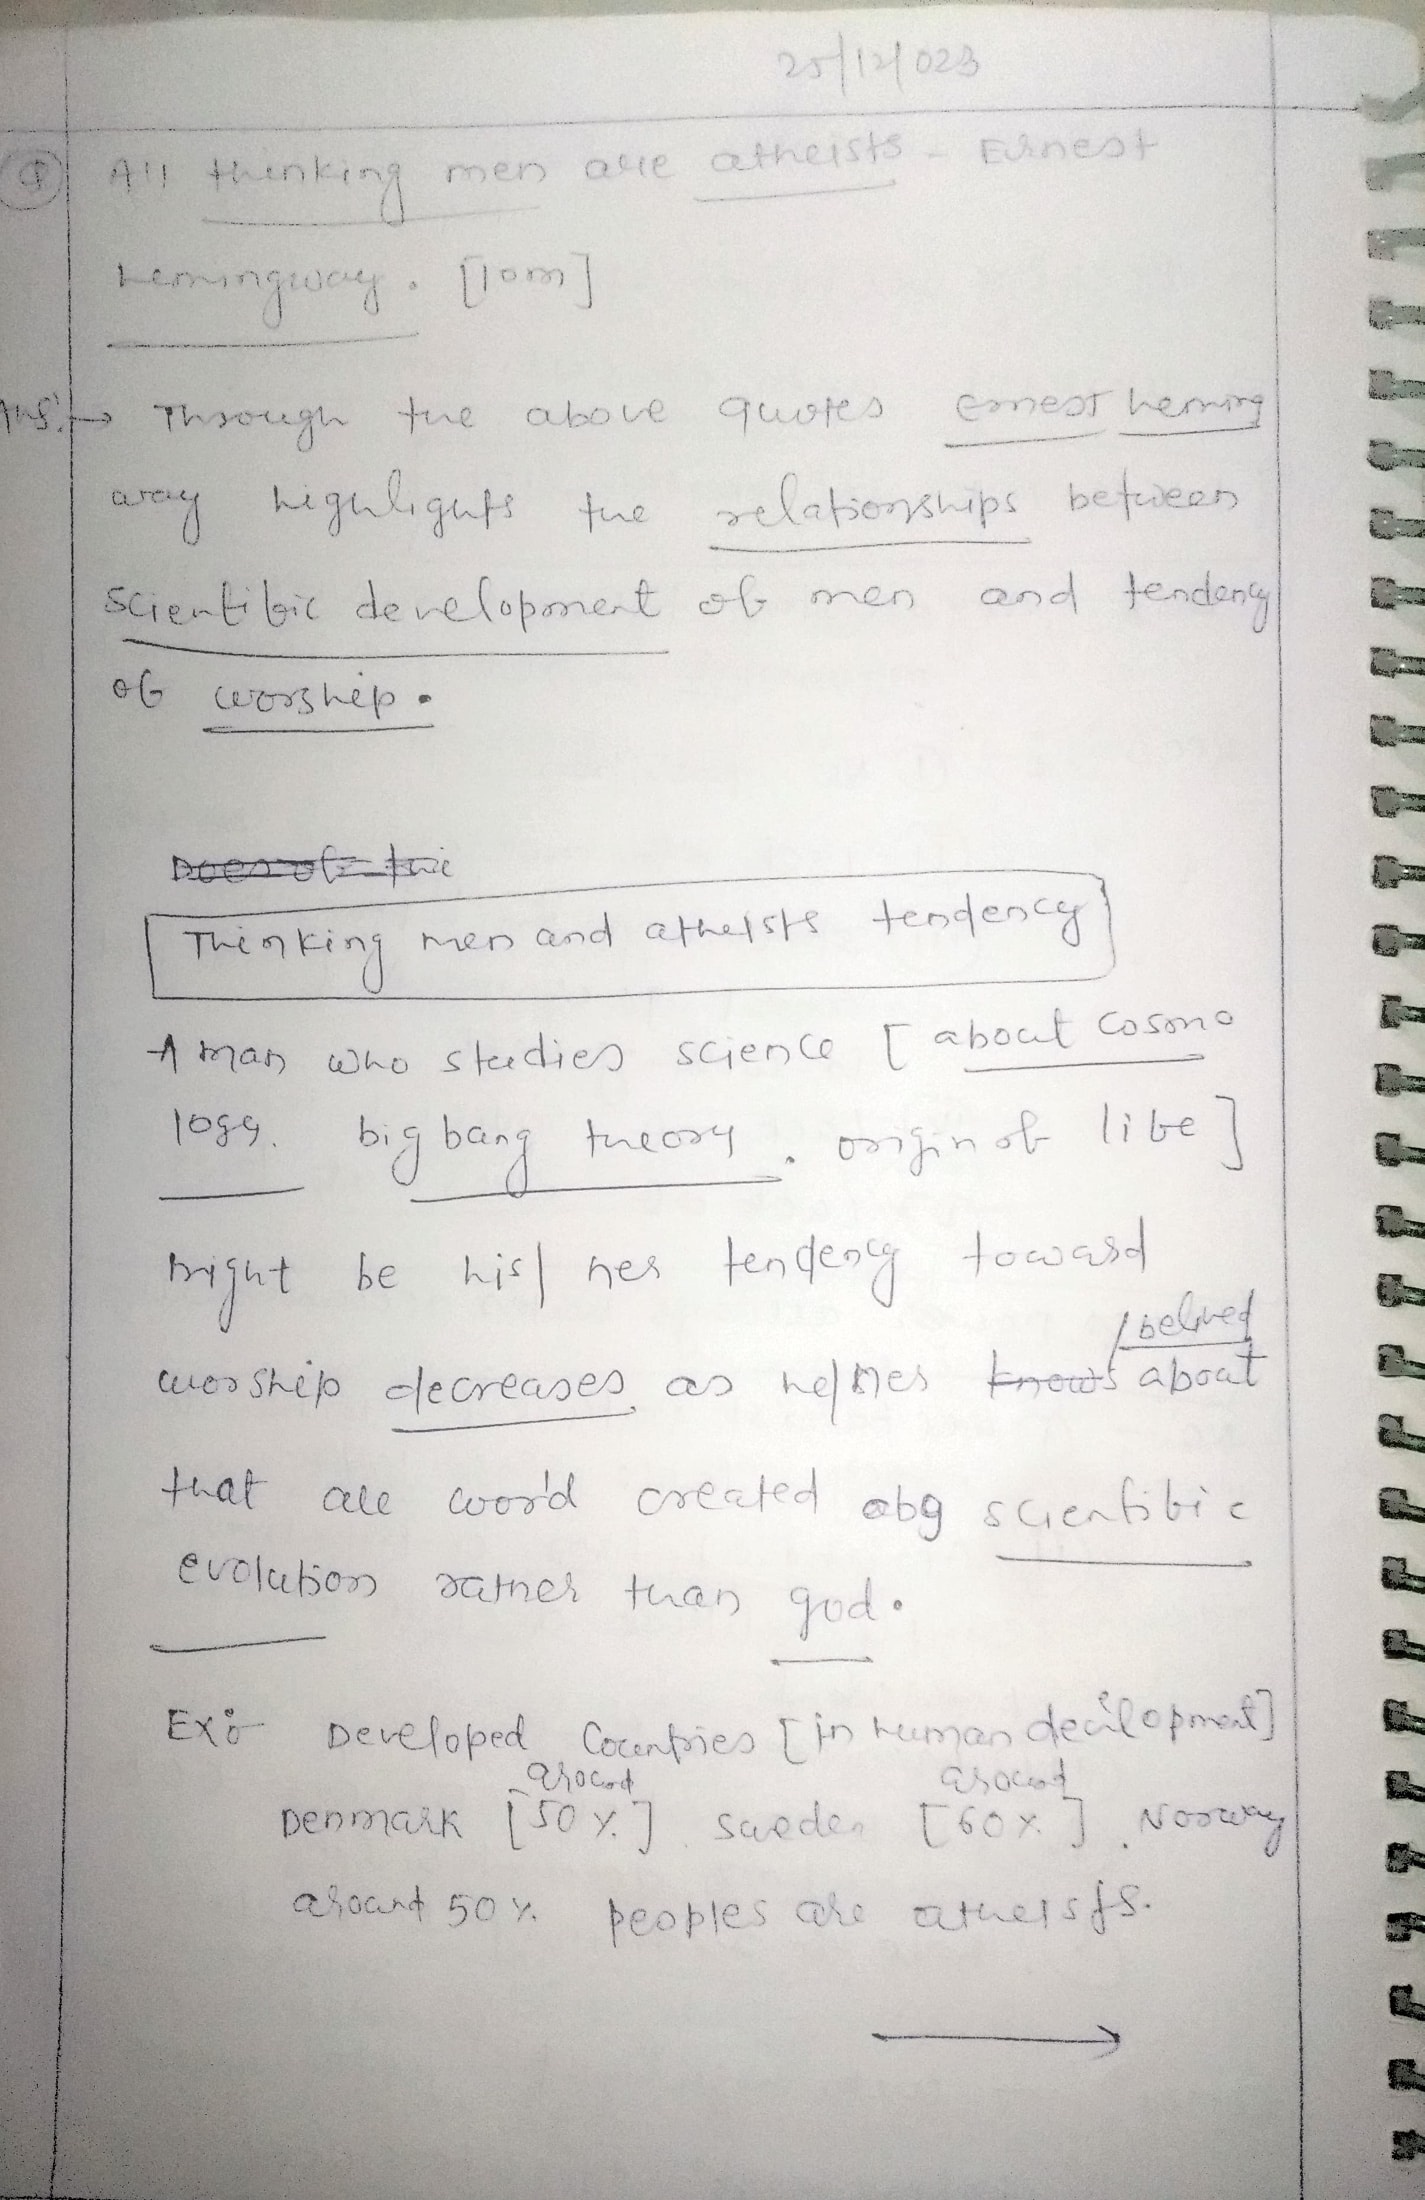 25/12/023
Q All thinking men are atheists - Ernest
Hemingway. [10m]
Ans:→ Through the above quotes ernest heming
way highlights the relationships between
scientific development of men and tendency
of worship.
Does of the
Thinking men and atheists tendency
A man who studies science [about cosmo
logy. big bang theory, origin of life]
might be his/her tendency toward
/belived
worship decreases as he/shes knows about
that all world created by scientific
evolution rather than god.
Ex:- Developed Countries [in human development]
around around
Denmark [50%], Sweden [60%], Norway
around 50% peoples are atheists.